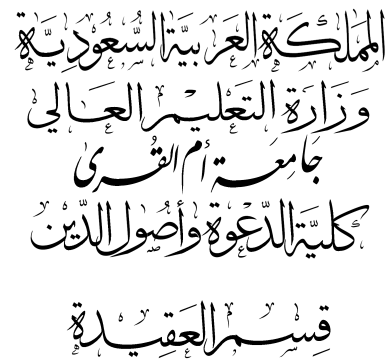 المملكة العربية السعودية
وزارة التعليم العالي
جامعة أم القرى
كلية الدعوة وأصول الدين
قسم العقيدة